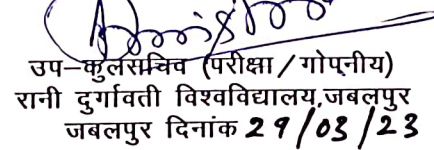 उप-कुलसचिव (परीक्षा/गोपनीय)
रानी दुर्गावती विश्वविद्यालय,जबलपुर
जबलपुर दिनांक 29/03/23